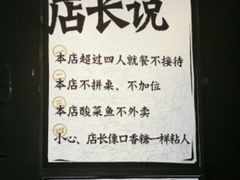 店长说
一 本店超过四人就餐不接待
二 本店不拼桌、不加位
三 本店酸菜鱼不外卖
四 小心、店长像口香糖一样粘人